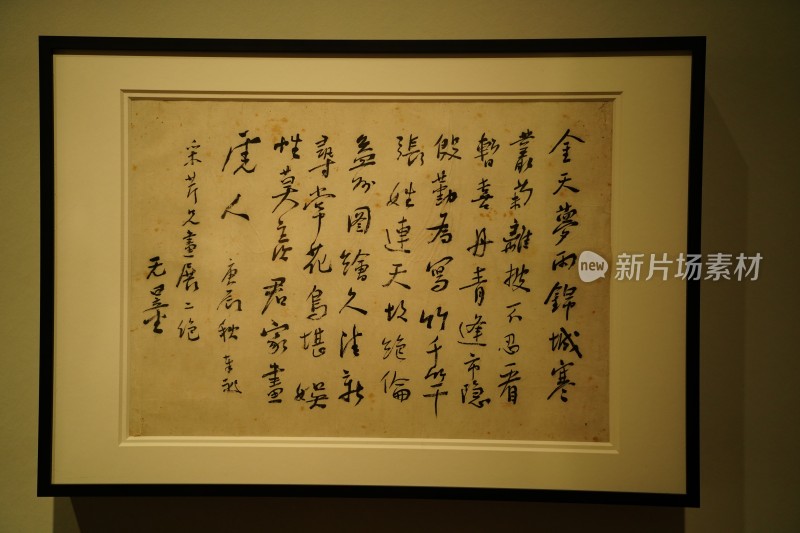 金天夢雨錦城寒
叢菊離披不忍看
暫喜丹青逢市隱
殷勤為寫竹千竿
張姓連天絕倫
益州圖繪久清新
尋常花鳥堪娛
性莫羨君家畫
虎人
庚辰秋
采芹兄畫展二絕
无量
new 新片场素材